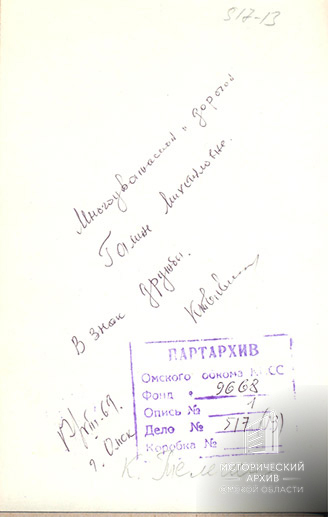 517-13
Многоуважаемой и дорогой
Галине Михайловне.
В знак дружбы.
69.
г. Омск
ПАРТАРХИВ
Омского обкома КПСС
Фонд 9668
Опись № 1
Дело № 517 (13)
Коробка №
ИСТОРИЧЕСКИЙ
АРХИВ
ОМСКОЙ ОБЛАСТИ